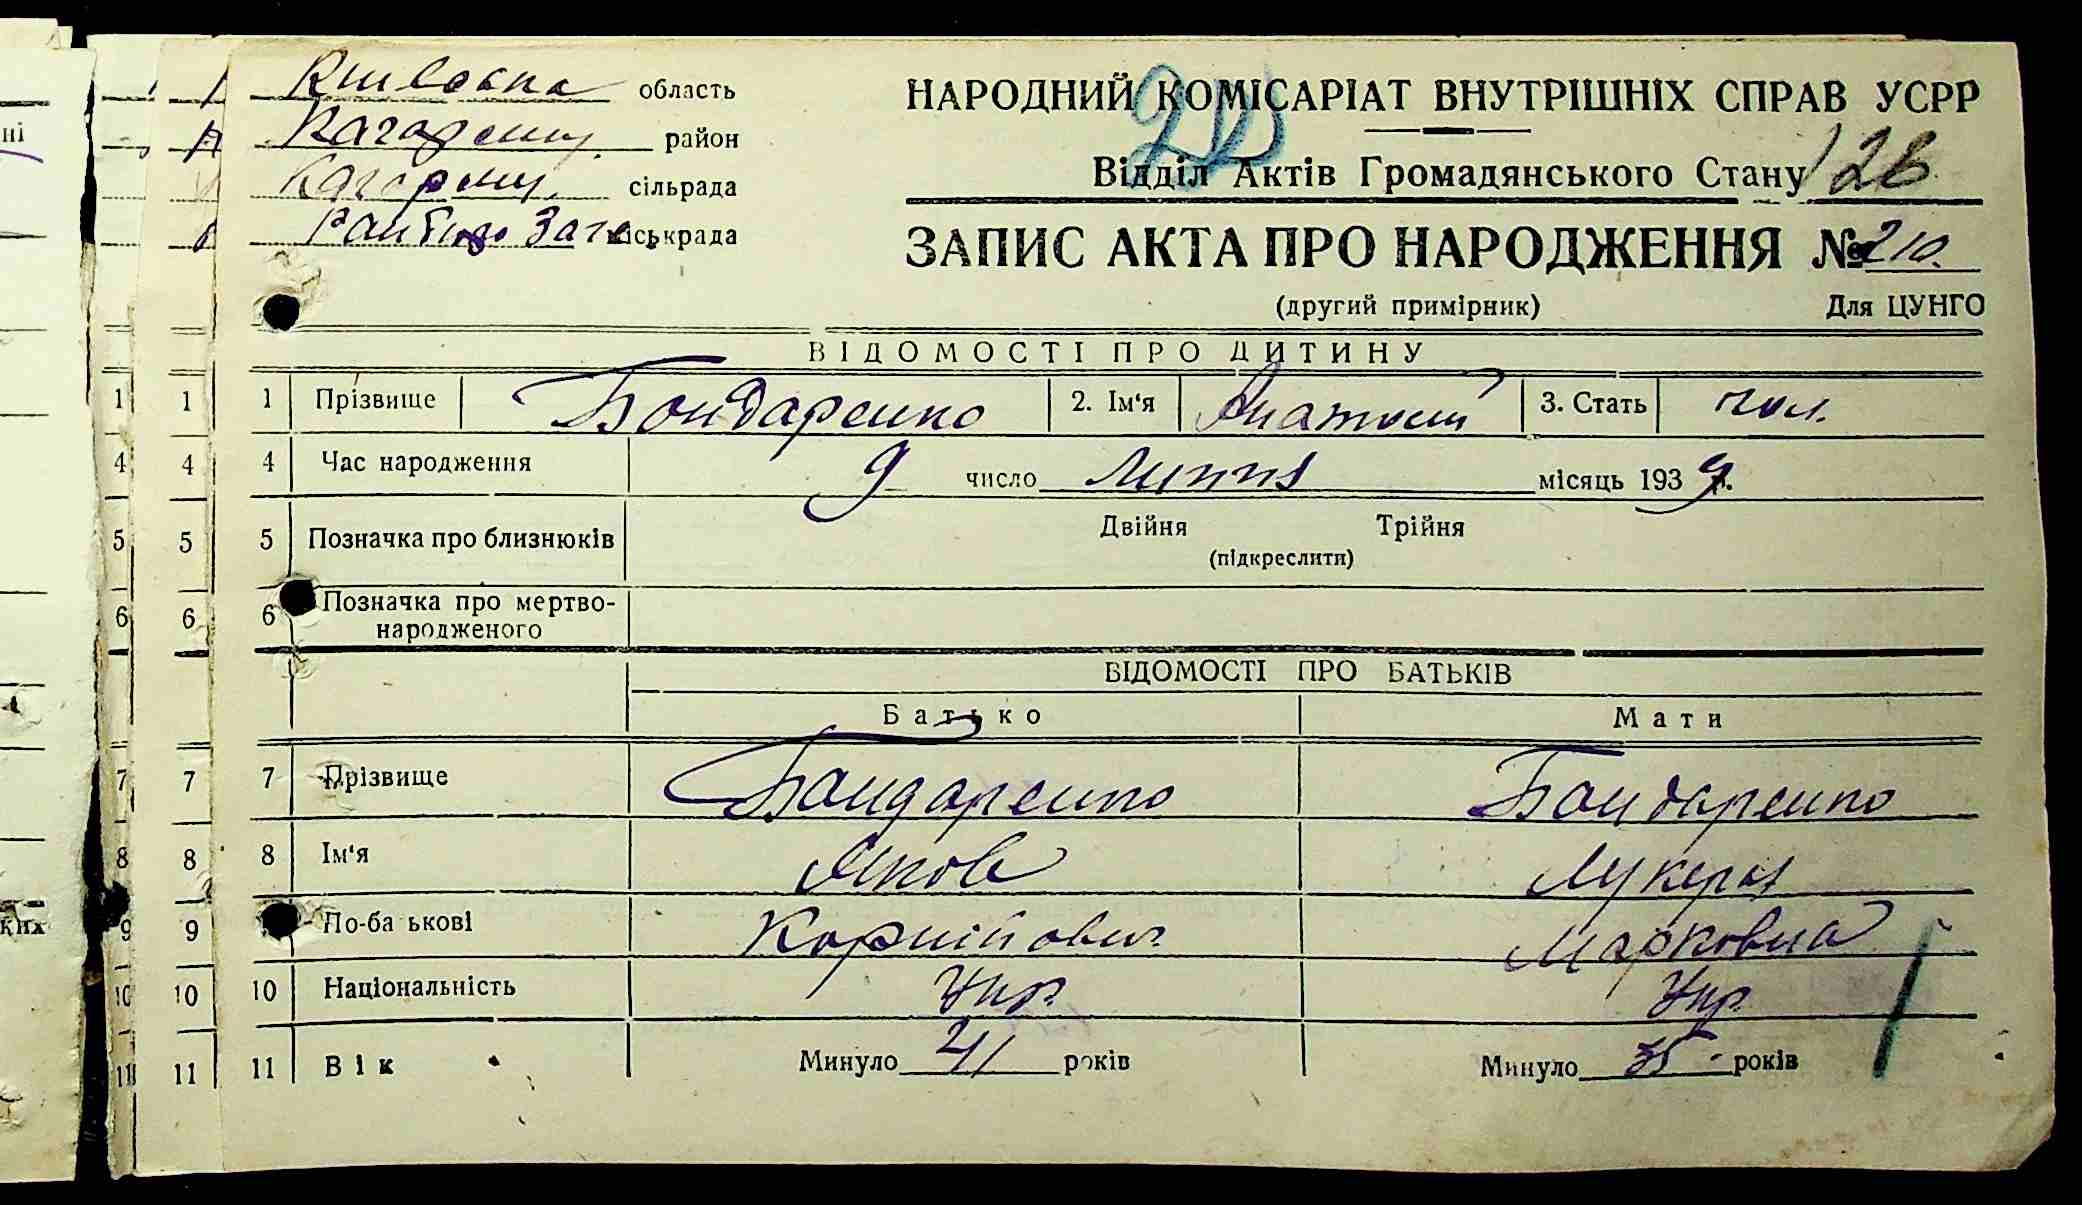 Київська область
Кагарлицьк. район
Кагарлицьк. сільрада
міськрада
НАРОДНИЙ КОМІСАРІАТ ВНУТРІШНІХ СПРАВ УСРР
Відділ Актів Громадянського Стану 128
ЗАПИС АКТА ПРО НАРОДЖЕННЯ № 210.
(другий примірник) Для ЦУНГО
ВІДОМОСТІ ПРО ДИТИНУ
1 1 1 Прізвище Бондаренко 2. Ім'я Анатолій 3. Стать чол.
4 4 4 Час народження 9 число Липня місяць 1939 р.
5 5 5 Позначка про близнюків Двійня Трійня
(підкреслити)
6 6 6 Позначка про мертво-
народженого
ВІДОМОСТІ ПРО БАТЬКІВ
Батько Мати
7 7 7 Прізвище Бондаренко Бондаренко
8 8 8 Ім'я Яков Лукера
9 9 По-ба ькові Корнійович Марковна
10 10 10 Національність Укр. Укр.
11 11 11 Вік Минуло 41 років Минуло 35 років